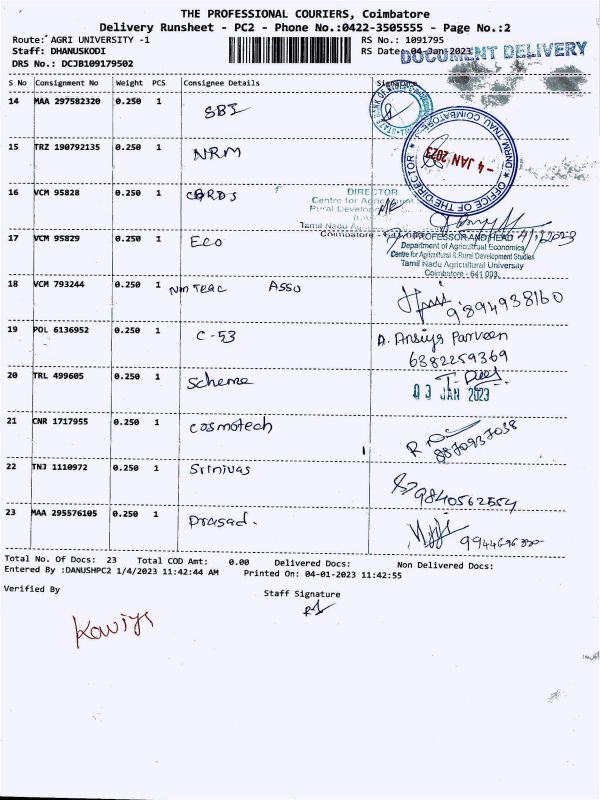 THE PROFESSIONAL COURIERS, Coimbatore
Delivery Runsheet - PC2 - Phone No.:0422-3505555 - Page No.:2
Route: AGRI UNIVERSITY -1 RS No.: 1091795
Staff: DHANUSKODI RS Date: 04-Jan-2023
DOCUMENT DELIVERY
DRS No.: DCJB109179502
S No Consignment No Weight PCS Consignee Details Signature
14 MAA 297582320 0.250 1 SBI
15 TRZ 190792135 0.250 1 NRM
- 4 JAN 2023
OFFICE OF THE DIRECTOR
16 VCM 95828 0.250 1 CARDS
DIRECTOR
Centre for Agricultural
Rural Development
Tamil Nadu
Coimbatore - 641
17 VCM 95829 0.250 1 Eco
PROFESSOR AND HEAD
Department of Agricultural Economics
Centre for Agricultural & Rural Development Studies
Tamil Nadu Agricultural University
Coimbatore - 641 003.
18 VCM 793244 0.250 1 Asso
9894938160
19 POL 6136952 0.250 1 C-53 A. Ansiya Parveen
6382259369
20 TRL 499605 0.250 1 Scheme
03 JAN 2023
21 CNR 1717955 0.250 1 Cosmotech
8870937038
22 TNJ 1110972 0.250 1 Srinivas
9840562554
23 MAA 295576105 0.250 1 Prasad.
Total No. Of Docs: 23 Total COD Amt: 0.00 Delivered Docs: Non Delivered Docs:
Entered By :DANUSHPC2 1/4/2023 11:42:44 AM Printed On: 04-01-2023 11:42:55
Verified By Staff Signature
Kaviya